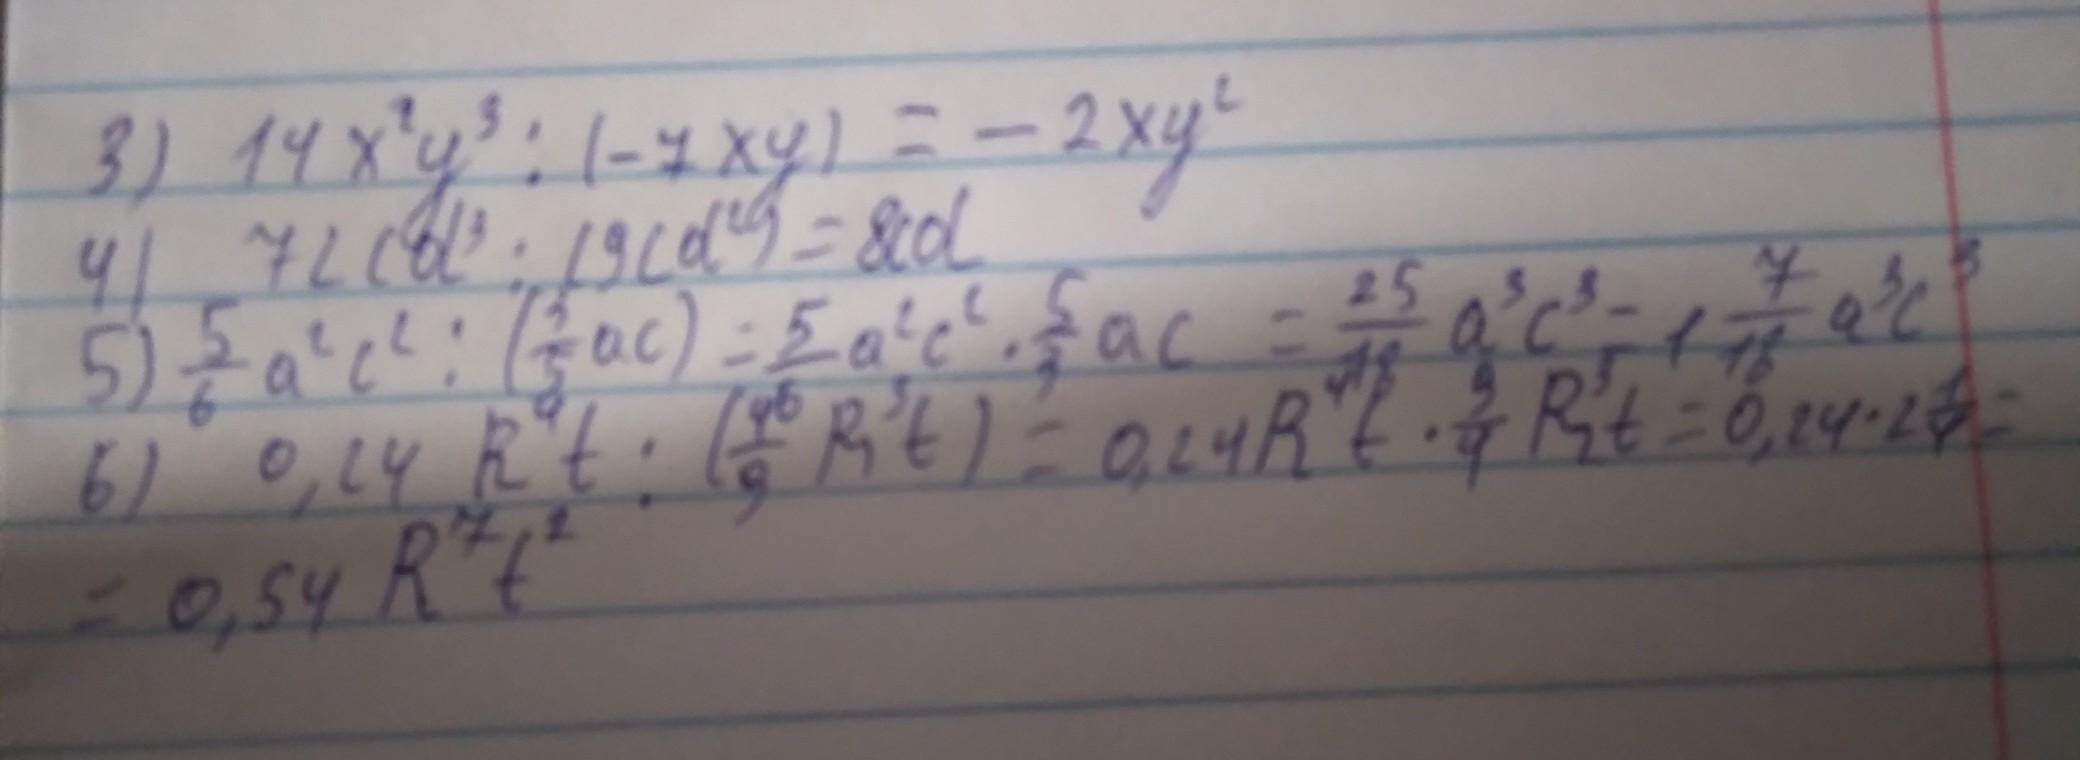 3) 14x²y³ : (-7xy) = -2xy²
4) 72c²d³ : (9cd²) = 8cd
5) 5/6 a²c² : (3/5 ac) = 5/6 a²c² · 5/3 ac = 25/18 a³c³ = 1 7/18 a³c³
6) 0,24 R⁴t : (4/9 R³t) = 0,24R⁴t · 9/4 R³t = 0,24 · 2 1/4 =
= 0,54 R⁷t²